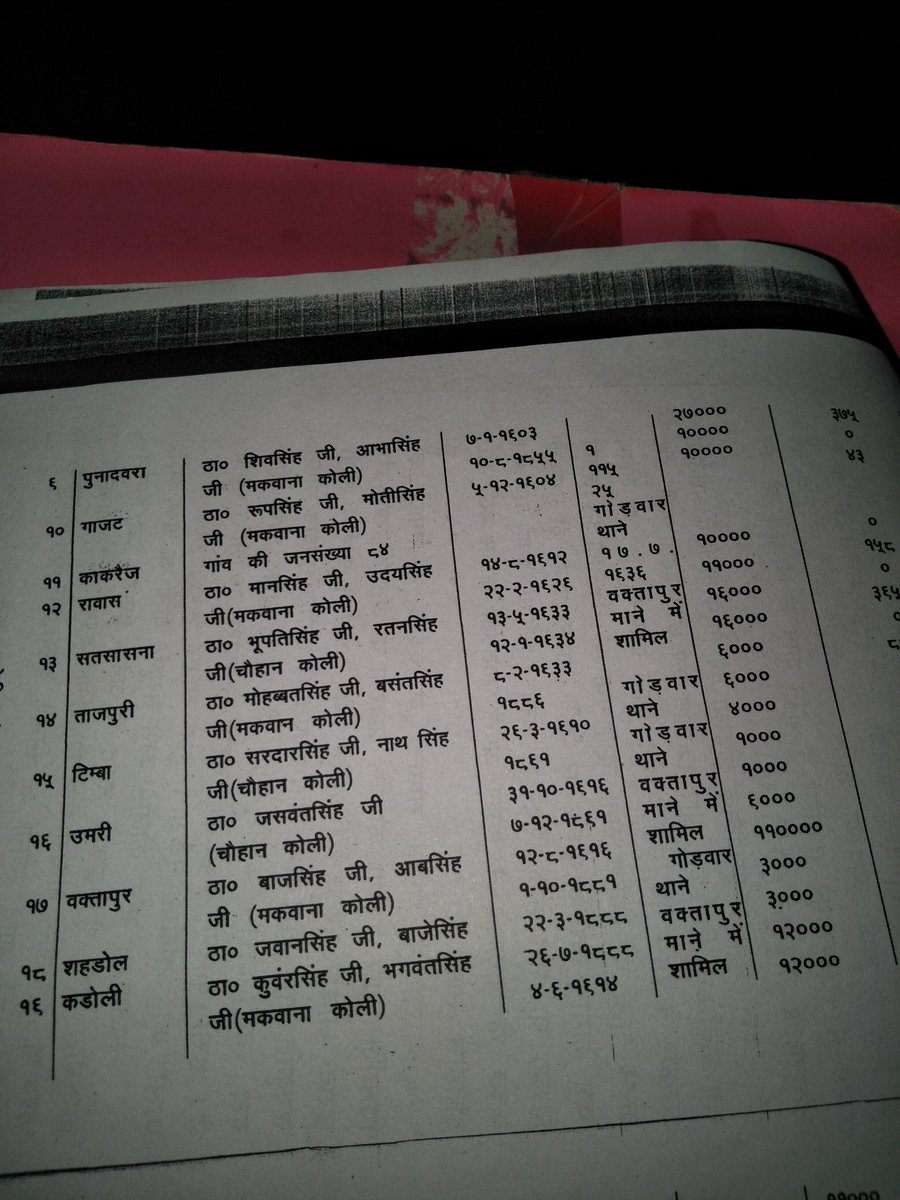 ६
१०
११
१२
१३
१४
१५
१६
१७
१८
१६
पुनादवरा
गाजट
काकरैज
रावास
सतसासना
ताजपुरी
टिम्बा
उमरी
वक्तापुर
शहडोल
कडोली
ठा० शिवसिंह जी, आभासिंह
जी (मकवाना कोली)
ठा० रूपसिंह जी, मोतीसिंह
जी (मकवाना कोली)
गांव की जनसंख्या ८४
ठा० मानसिंह जी, उदयसिंह
जी(मकवाना कोली)
ठा० भूपतिसिंह जी, रतनसिंह
जी(चौहान कोली)
ठा० मोहब्बतसिंह जी, बसंतसिंह
जी(मकवान कोली)
ठा० सरदारसिंह जी, नाथ सिंह
जी(चौहान कोली)
ठा० जसवंतसिंह जी
(चौहान कोली)
ठा० बाजसिंह जी, आबसिंह
जी (मकवाना कोली)
ठा० जवानसिंह जी, बाजेसिंह
ठा० कुवंरसिंह जी, भगवंतसिंह
जी(मकवाना कोली)
७-१-१६०३
१०-८-१८५५
५-१२-१६०४
१४-८-१६१२
२२-२-१६२६
१३-५-१६३३
१२-१-१६३४
८-२-१६३३
१८८६
२६-३-१६१०
१८६१
३१-१०-१६१६
७-१२-१८६१
१२-८-१६१६
१-१०-१८८१
२२-३-१८८८
२६-७-१८८८
४-६-१६१४
१
११५
२५
गोड़वार
थाने
१७.७.
१६३६
वक्तापुर
माने में
शामिल
गोड़वार
थाने
गोड़वार
थाने
वक्तापुर
माने में
शामिल
गोड़वार
थाने
वक्तापुर
माने में
शामिल
२७०००
१००००
१००००
१००००
११०००
१६०००
१६०००
६०००
६०००
४०००
१०००
१०००
६०००
११००००
३०००
३०००
१२०००
१२०००
३७५
०
४३
०
१५८
०
३६५